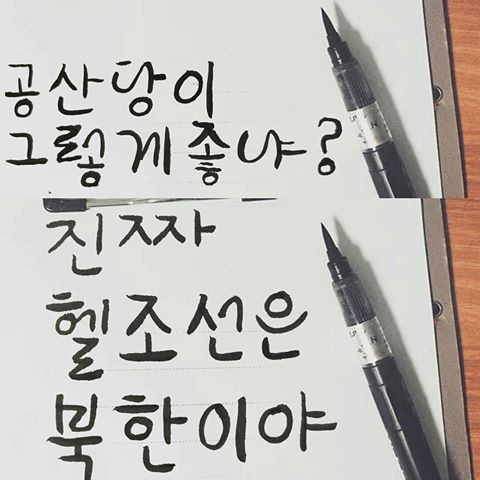 공산당이
그렇게좋냐?
진짜
헬조선은
북한이야